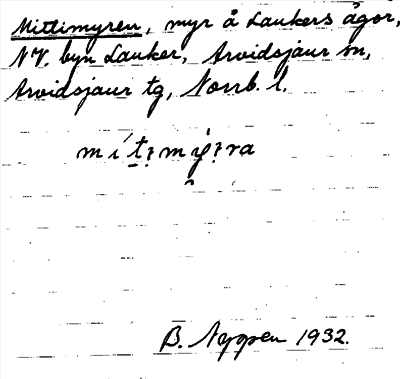 Mittimyren, myr å Laukers ägor,
NV. byn Lauker, Arvidsjaur sn,
Arvidsjaur tg, Norrb. l.
B. Nyppen 1932.